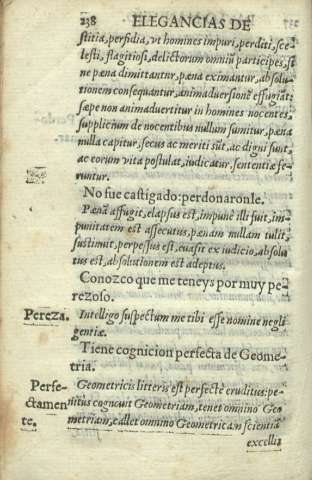 238 ELEGANCIAS DE
stitia, perfidia, vt homines impuri, perditi, sce-
lesti, flagitiosi, delictorum omniũ participes, si
ne pœna dimittantur, pœna eximantur, absolu-
tionem consequantur, animaduersionẽ effugiãt:
sæpe non animaduertitur in homines nocentes,
supplicium de nocentibus nullum sumitur, pœna
nulla capitur, secus ac meriti sũt, ac digni sunt,
ac eorum vita postulat, iudicatur, sententiæ fe-
runtur.
No fue castigado: perdonaronle.
Pœnã affugit, elapsus est, impunè illi fuit, im-
punitatem est assecutus, pœnam nullam tulit,
sustinuit, perpessus est, euasit ex iudicio, absolu
tus est, absolutionem est adeptus.
Conozco que me teneys por muy pe-
rezoso.
Pereza. Intelligo suspectum me tibi esse nomine negli
gentiæ.
Tiene cognicion perfecta de Geome-
tria.
Perfe-
ctamen
te.
Geometricis litteris est perfectè eruditus: pe-
nitus cognouit Geometriam, tenet omnino Geo
metriam, callet omnino Geometricam scientiã
excelli